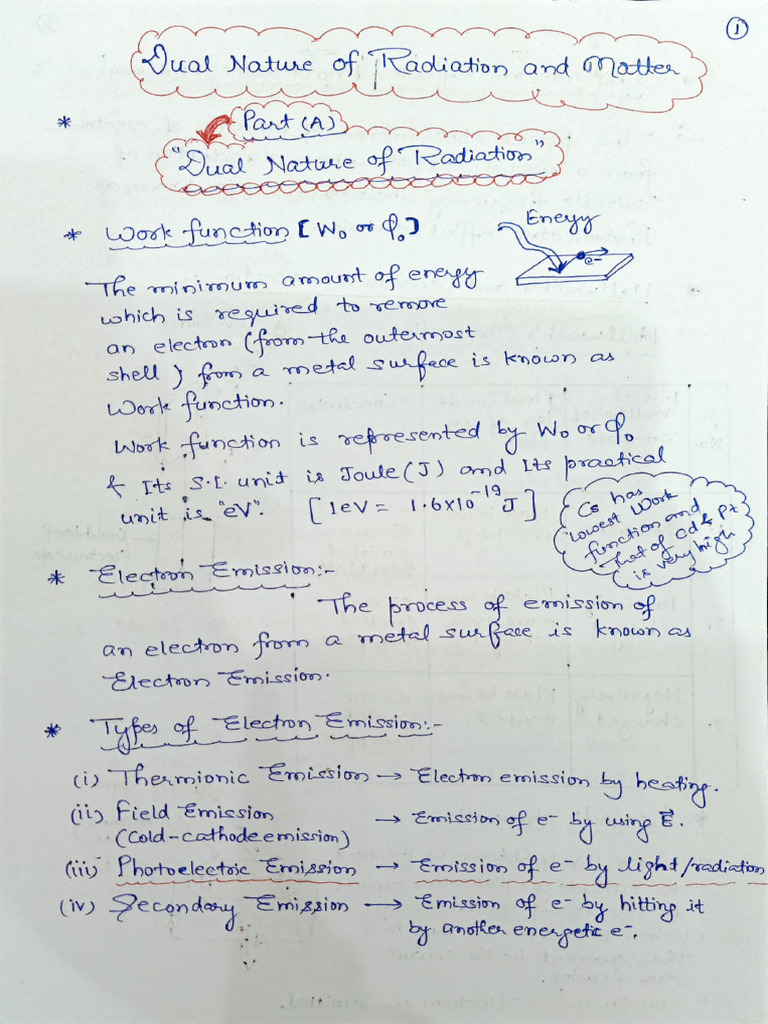 ①
Dual Nature of Radiation and Matter
* Part (A)
"Dual Nature of Radiation"
* Work function [W₀ or φ₀]
Energy
e-
The minimum amount of energy
which is required to remove
an electron (from the outermost
shell) from a metal surface is known as
Work function.
Work function is represented by W₀ or φ₀
& Its S.I. unit is Joule (J) and Its practical
unit is "eV". [1eV = 1.6×10⁻¹⁹ J]
Cs has
lowest Work
function and
that of Cd & Pt
is very high
* Electron Emission:-
The process of emission of
an electron from a metal surface is known as
Electron Emission.
* Types of Electron Emission:-
(i) Thermionic Emission → Electron emission by heating.
(ii) Field Emission → Emission of e⁻ by using E⃗.
(Cold-cathode emission)
(iii) Photoelectric Emission → Emission of e⁻ by light/radiation
(iv) Secondary Emission → Emission of e⁻ by hitting it
by another energetic e⁻.